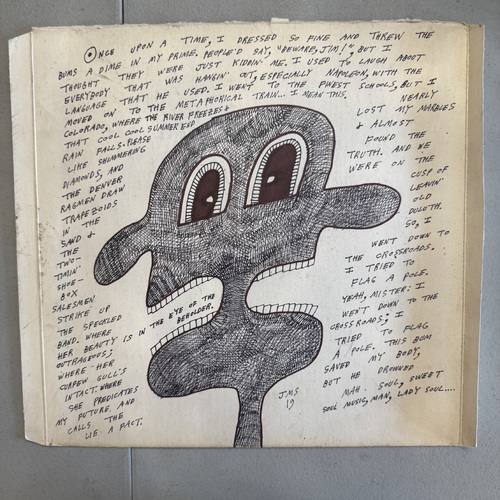 ONCE UPON A TIME, I DRESSED SO FINE AND THREW THE
BUMS A DIME IN MY PRIME. PEOPLE'D SAY, "BEWARE, JIM!", BUT I
THOUGHT THEY WERE JUST KIDDIN' ME. I USED TO LAUGH ABOUT
EVERYBODY THAT WAS HANGIN' OUT, ESPECIALLY NAPOLEON, WITH THE
LANGUAGE THAT HE USED. I WENT TO THE FINEST SCHOOLS, BUT I
MOVED ON TO THE METAPHORICAL TRAIN... I MEAN THIS.
COLORADO, WHERE THE RIVER FREEZES &
THAT COOL COOL SUMMER
RAIN FALLS. PLEASE
LIKE SHIMMERING
DIAMONDS, AND
THE DENVER
RAGMEN DRAW
TRAPEZOIDS
IN THE
SAND &
THE
TWO-
TIMIN'
SHOE-
BOX
SALESMEN
STRIKE UP
THE SPECKLED
BAND. WHERE
HER BEAUTY IS IN THE EYE OF THE
BEHOLDER.
OUTRAGEOUS;
WHERE HER
CURFEW GULL'S
INTACT. WHERE
SHE PREDICATES
MY FUTURE AND
CALLS THE
LIE A PACT.
NEARLY
LOST MY MARBLES
& ALMOST
FOUND THE
TRUTH. AND WE
WERE ON THE
CUSP OF
LEAVIN'
OLD
DULUTH.
SO, I
WENT DOWN TO
THE CROSSROADS.
I TRIED TO
FLAG A POLE.
YEAH, MISTER: I
WENT DOWN TO THE
CROSSROADS; I
TRIED TO FLAG
A POLE. THIS BOM
SAVED MY BODY,
BUT HE DROWNED
MAH SOUL, SWEET
SOUL MUSIC, MAN, LADY SOUL....
JMS
19